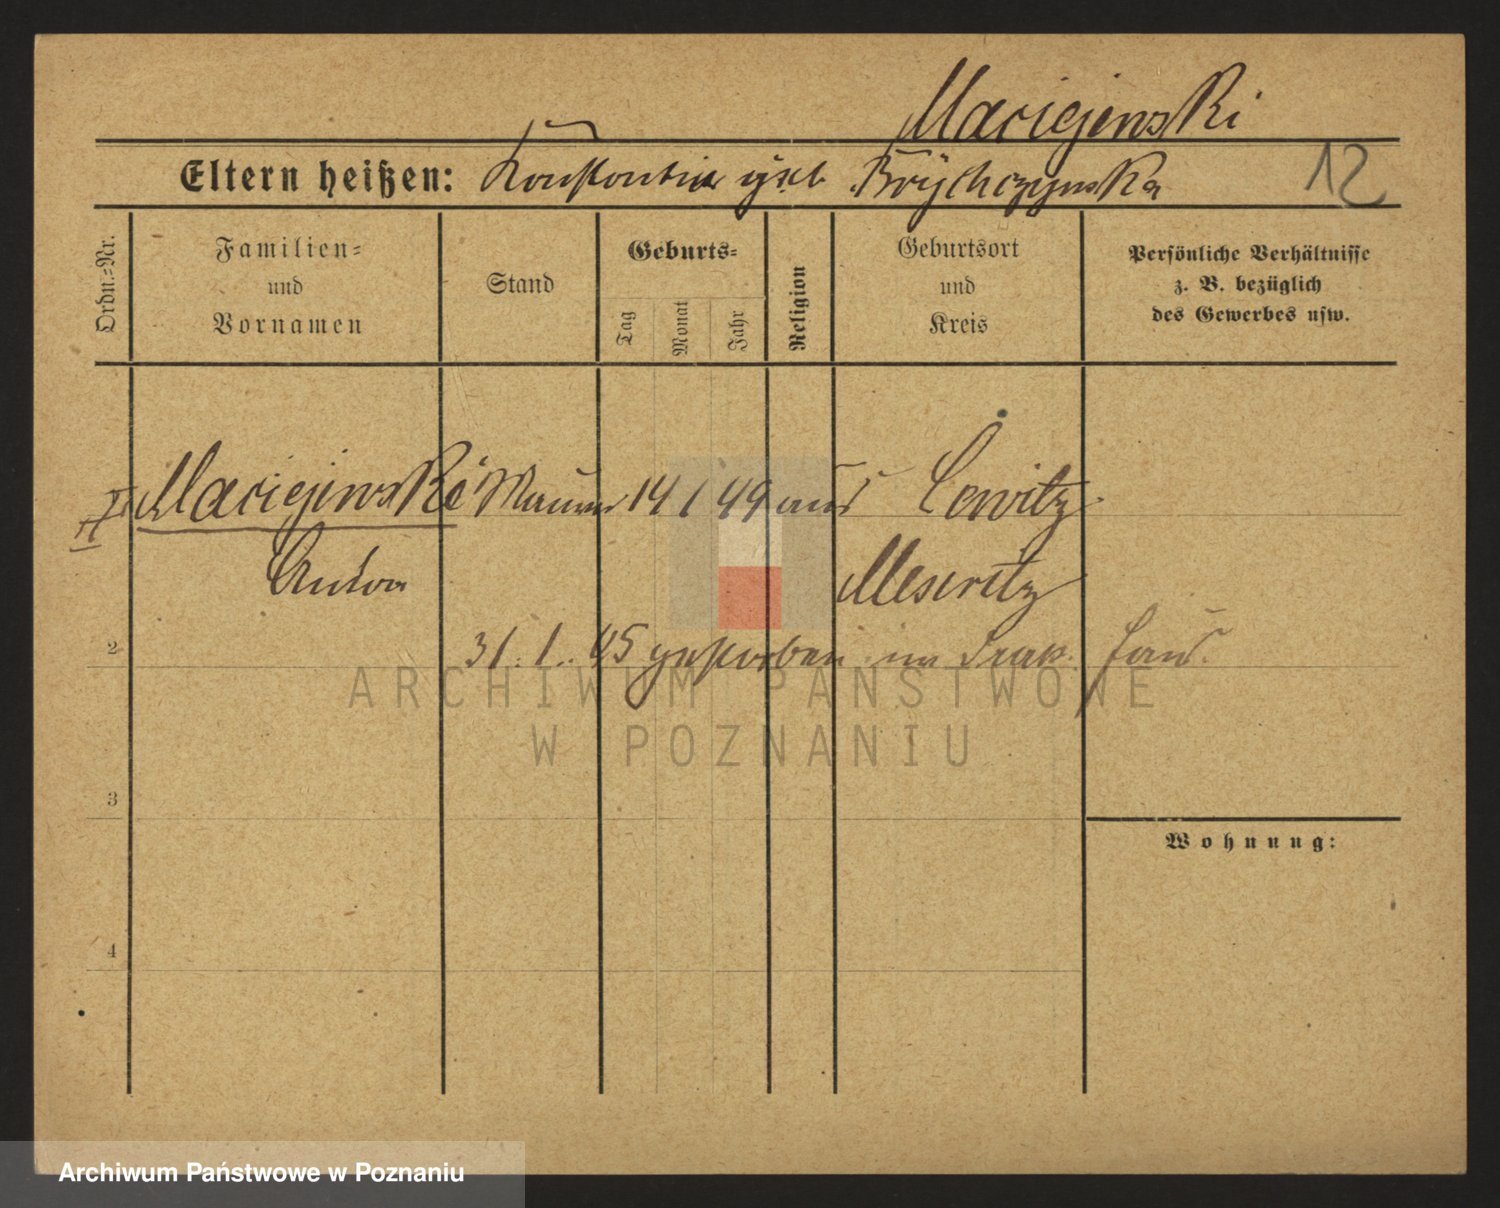 Maciejewski
Eltern heißen: Konstantin gxb. Brychczynska 12
Ordn.-Nr.
Familien-
und
Vornamen
Stand
Geburts-
Tag
Monat
Jahr
Religion
Geburtsort
und
Kreis
Persönliche Verhältnisse
z. B. bezüglich
des Gewerbes usw.
Maciejewski Maurer 14 1 49 aus Lowitz
Anton Meseritz
2
31. 1. 95 gestorben im
ARCHIWUM PAŃSTWOWE
W POZNANIU
3
Wohnung:
4
Archiwum Państwowe w Poznaniu